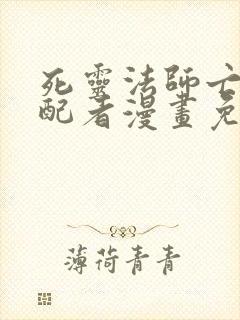 死靈法師亡
配者漫畫免
薄荷青青